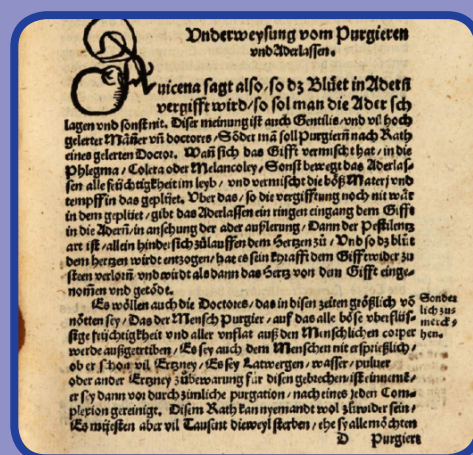 Vnderweysung vom Purgieren
vnd Aderlassen.
Auicena sagt also / so dz Blüet in Adern
vergifft wird / so sol man die Ader sch
lagen vnd sonst nit. Diser meinung ist auch Gentilis / vnd vil hoch
gelerter Mäñer vñ doctores / Söder mā soll Purgierñ nach Rath
eines gelerten Doctor. Wañ sich das Gifft vermischt hat / in die
Phlegma / Colera oder Melancoley / Sonst bewegt das Aderlas-
sen alle früchtigkheit im leyb / vnd vermischt die böß Materj vnd
tempff in das geplüet. Vber das / so die vergifftung noch nit wär
in dem geplüet / gibt das Aderlassen ein ringen eingang dem Gifft
in die Aderñ / in anschung der ader außlerung / Dann der Pestilentz
art ist / allein hindersich zůlauffen dem Hertzen zů / Vnd so dz blüt
dem hertzen wirdt entzogen / hat es sein khrafft dem Gifft wider zů
steen verlorn vnd wirdt als dann das Hertz von dem Gifft einge-
nom̃en vnd getödt.
Es wöllen auch die Doctores / das in disen zeiten größlich vō
nötten sey / Das der Mensch Purgier / auf das alle böse vberflüs-
sige früchtigkheit vnd aller vnflat auß den Menschlichen corper
werde außgetrtiben / Es sey auch dem Menschen nit ersprießlich /
ob er schon vil Ertzney / Es sey Latwergen / wasser / puluer
oder ander Ertzney zůbewarung für disen gebrechen / ist einnemē /
er sey dann vor durch zimliche purgation / nach eines jeden Com-
plexion gereinigt. Disem Rath kan nyemandt wol zůwider sein /
Es müesten aber vil Tausent dieweyl sterben / ehe sy alle möchten
Sonder
lich zů-
merck-
hen.
D Purgiert